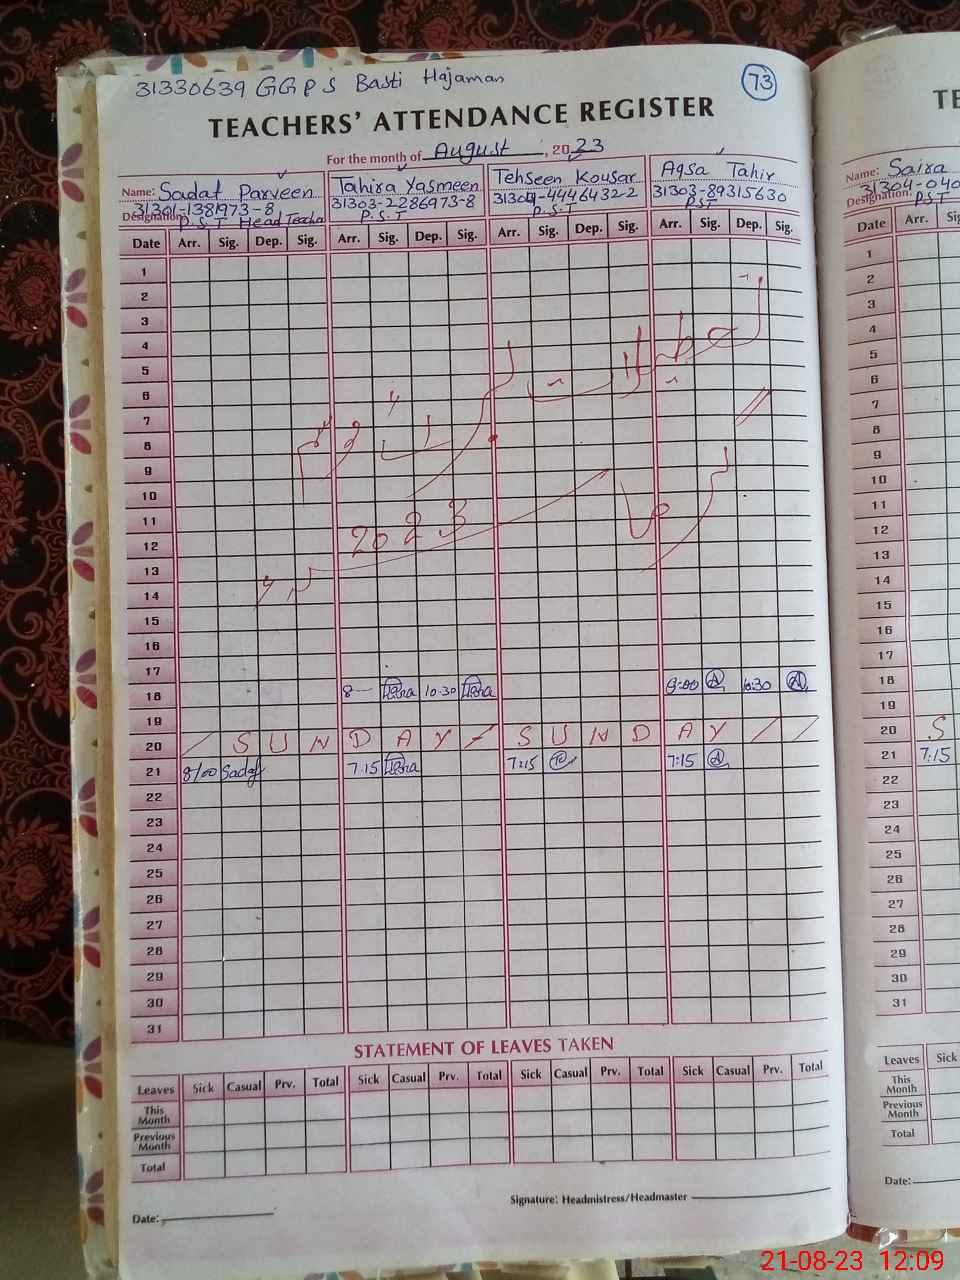 31330639 GGPS Basti Hajaman
73
TEACHERS' ATTENDANCE REGISTER
For the month of August, 2023
Name: Sadaf Parveen Tahira Yasmeen Tehseen Kousar Aqsa Tahir
31303-2286973-8 31303-89315630
Designation: P.S.T Head Teacher P.S.T P.S.T PST
Date Arr. Sig. Dep. Sig. Arr. Sig. Dep. Sig. Arr. Sig. Dep. Sig. Arr. Sig. Dep. Sig.
1
2
3
4
5
6
7
8
9
10
11
12
13
14
15
16
17
18 8— 10.30 8:00 A 10:30 A
19
20 S U N D A Y S U N D A Y
21 8/00 Sadaf 7.15 7:15 7:15 A
22
23
24
25
26
27
28
29
30
31
تعطیلات
موسم
گرما
2023
STATEMENT OF LEAVES TAKEN
Leaves Sick Casual Prv. Total Sick Casual Prv. Total Sick Casual Prv. Total Sick Casual Prv. Total
This Month
Previous Month
Total
Signature: Headmistress/Headmaster
Date:
TE
Name: Saira
31304-040
Designation: PST
Date Arr. Sig
1
2
3
4
5
6
7
8
9
10
11
12
13
14
15
16
17
18
19
20 S
21 7:15
22
23
24
25
26
27
28
29
30
31
Leaves Sick
This Month
Previous Month
Total
Date:
21-08-23 12:09